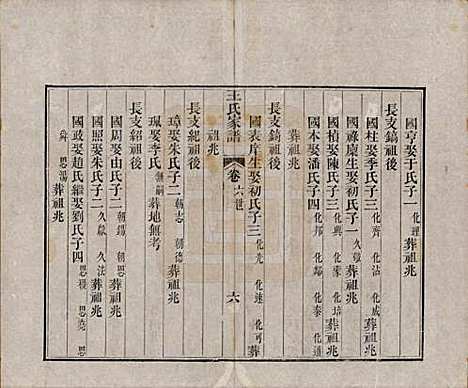 國亨娶于氏子一 化理 葬祖兆
長支鎬祖後
國柱娶季氏子三 化齊 化沾 化咸 葬祖兆
國祿廩生娶初氏子一 久蔓 葬祖兆
國楨娶陳氏子三 化興 化家 化培 葬祖兆
國本娶潘氏子四 化邦 化歸 化泰 化通
葬祖兆
長支錡祖後
國表庠生娶初氏子三 化光 化遠 化可 葬
王氏家譜
卷 六世
六
祖兆
長支紀祖後
璋娶朱氏子二 朝志 朝德 葬祖兆
珮娶李氏 無嗣 葬地無考
長支紹祖後
國周娶由氏子二 朝錫 朝恩 葬祖兆
國照娶朱氏子二 久獻 久法 葬祖兆
國政娶趙氏繼娶劉氏子四 思稷 思堯 思
舜 思湯 葬祖兆